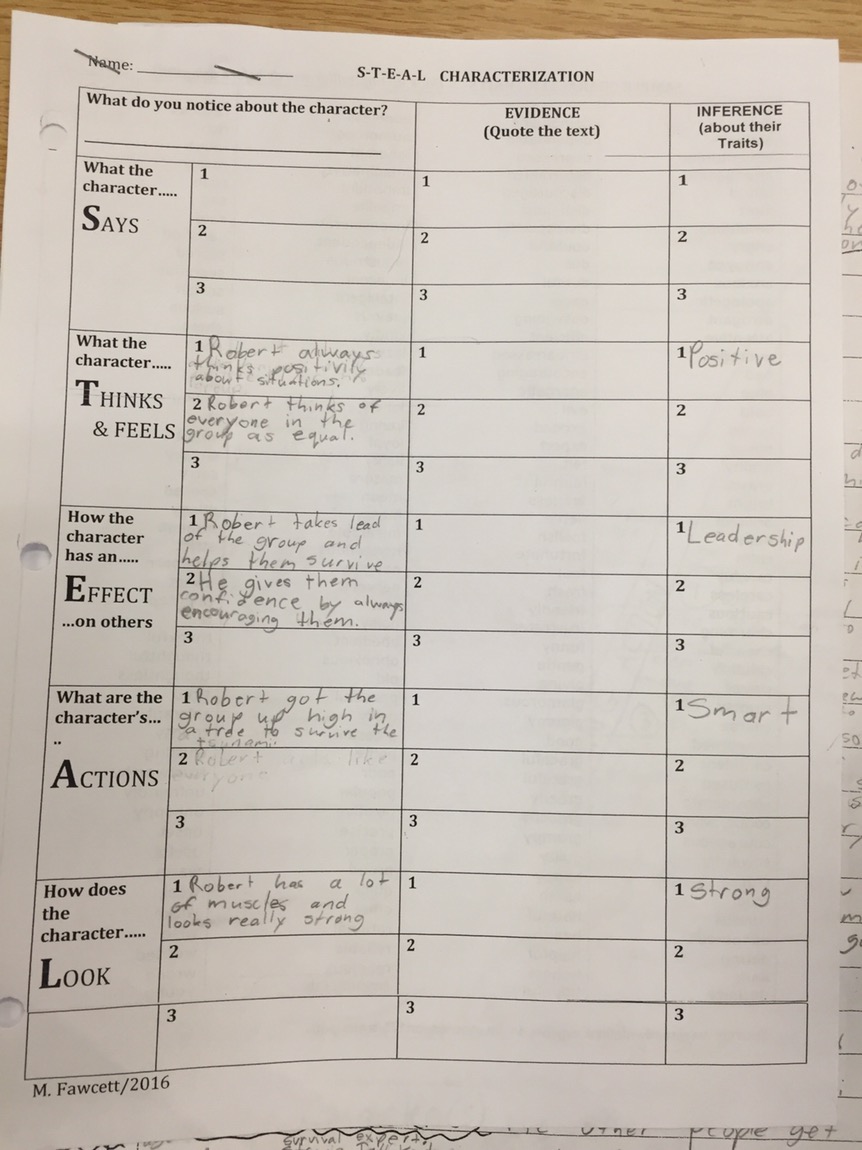 Name:
S-T-E-A-L CHARACTERIZATION
What do you notice about the character?
EVIDENCE
(Quote the text)
INFERENCE
(about their
Traits)
What the
character.....
SAYS
1
1
1
2
2
2
3
3
3
What the
character.....
THINKS
& FEELS
1 Robert always
thinks positivily
about situations.
1
1 Positive
2 Robert thinks of
everyone in the
group as equal.
2
2
3
3
3
How the
character
has an.....
EFFECT
...on others
1 Robert takes lead
of the group and
helps them survive
1
1 Leadership
2 He gives them
confidence by always
encouraging them.
2
2
3
3
3
What are the
character's...
..
ACTIONS
1 Robert got the
group up high in
a tree to survive the
tsunami.
1
1 Smart
2 Robert like
everyone
2
2
3
3
3
How does
the
character.....
LOOK
1 Robert has a lot
of muscles and
looks really strong
1
1 Strong
2
2
2
3
3
3
M. Fawcett/2016
survival expert,
other people get